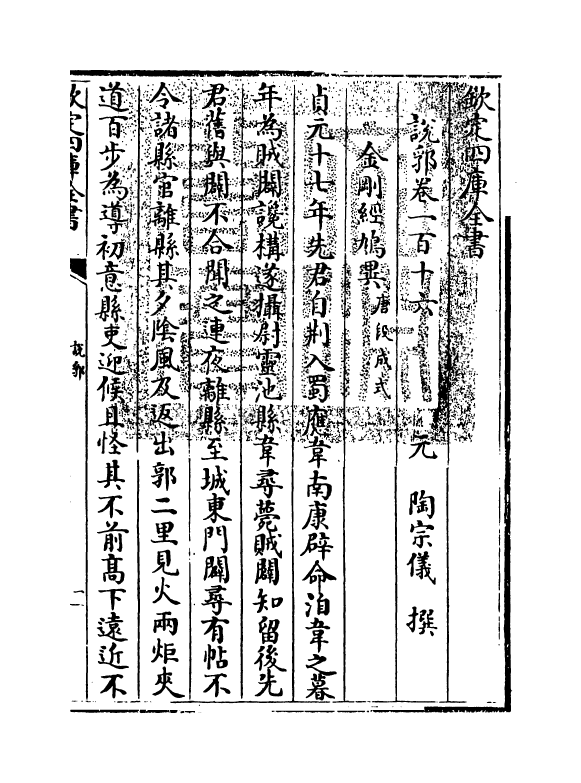 欽定四庫全書
說郛卷一百十六　元　陶宗儀　撰
金剛經鳩異唐段成式
貞元十七年先君自荆入蜀應韋南康辟命洎韋之暮
年為賊闢讒構遂攝尉靈池縣韋尋薨賊闢知留後先
君舊與闢不合聞之連夜離縣至城東門闢尋有帖不
令諸縣官離縣其夕陰風及返出郭二里見火兩炬夾
道百步為導初意縣吏迎候且怪其不前髙下遠近不
欽定四庫全書
說郛